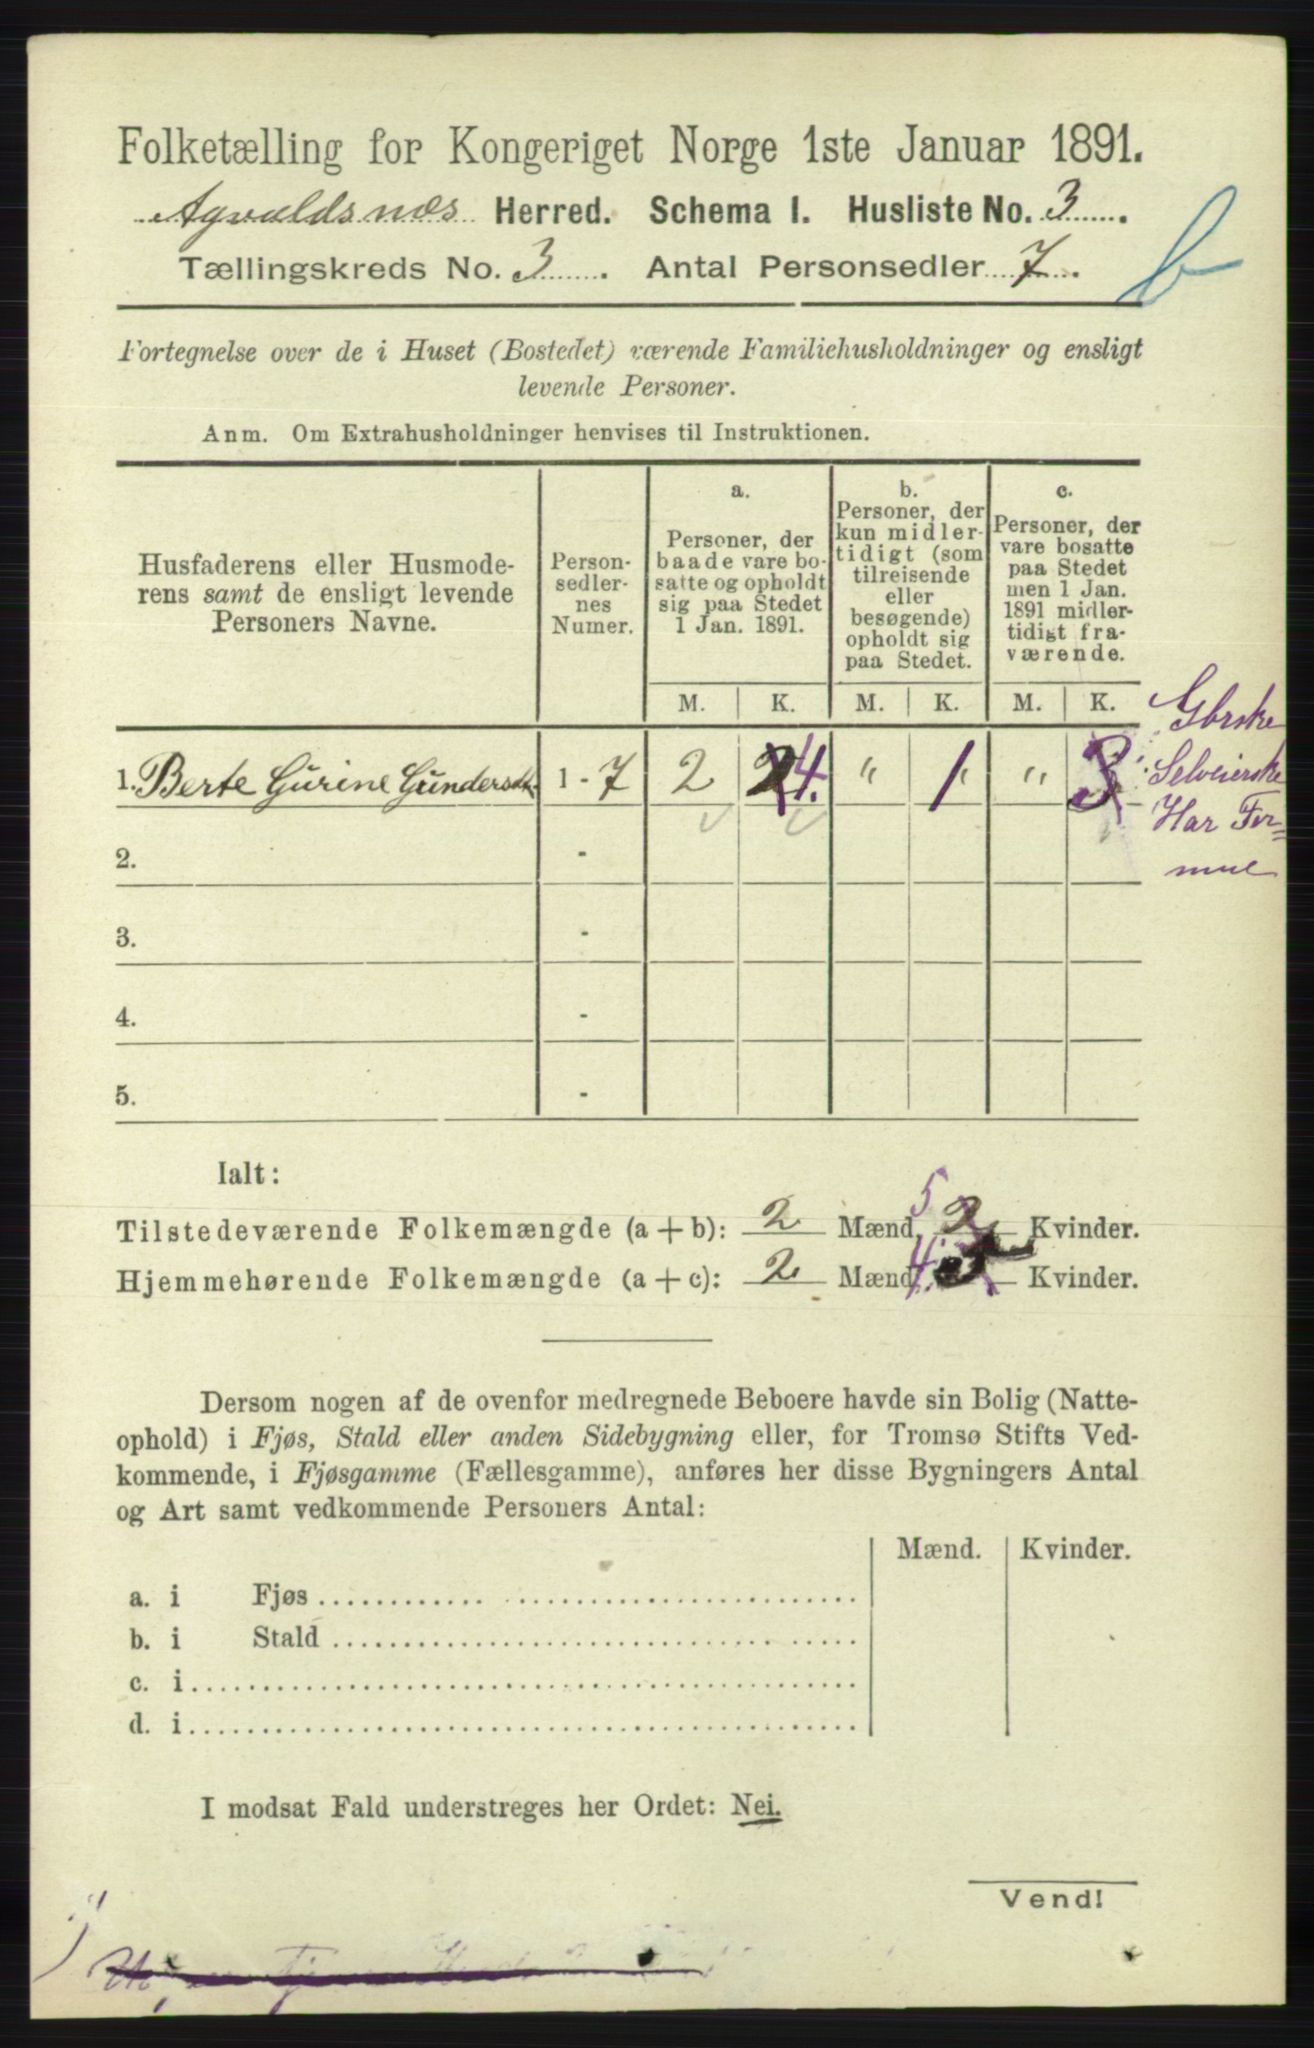 Folketælling for Kongeriget Norge 1ste Januar 1891.
Agvaldsnæs Herred. Schema I. Husliste No. 3.
Tællingskreds No. 3. Antal Personsedler 7.
b
Fortegnelse over de i Huset (Bostedet) værende Familiehusholdninger og ensligt
levende Personer.
Anm. Om Extrahusholdninger henvises til Instruktionen.
Husfaderens eller Husmode-
rens samt de ensligt levende
Personers Navne.
Person-
sedler-
nes
Numer.
a.
Personer, der
baade vare bo-
satte og opholdt
sig paa Stedet
1 Jan. 1891.
b.
Personer, der
kun midler-
tidigt (som
tilreisende
eller
besøgende)
opholdt sig
paa Stedet.
c.
Personer, der
vare bosatte
paa Stedet
men 1 Jan.
1891 midler-
tidigt fra-
værende.
M. K. M. K. M. K.
1. Berte Gurine Gundersdt. 1 - 7 2 2 4. " 1 " 3
Gbrske
Selveierske
Har For=
mue
2. -
3. -
4. -
5. -
Ialt:
Tilstedeværende Folkemængde (a + b): 2 Mænd, 5 2 Kvinder.
Hjemmehørende Folkemængde (a + c): 2 Mænd, 4. 5 Kvinder.
Dersom nogen af de ovenfor medregnede Beboere havde sin Bolig (Natte-
ophold) i Fjøs, Stald eller anden Sidebygning eller, for Tromsø Stifts Ved-
kommende, i Fjøsgamme (Fællesgamme), anføres her disse Bygningers Antal
og Art samt vedkommende Personers Antal:
Mænd. Kvinder.
a. i Fjøs
b. i Stald
c. i
d. i
I modsat Fald understreges her Ordet: Nei.
Vend!